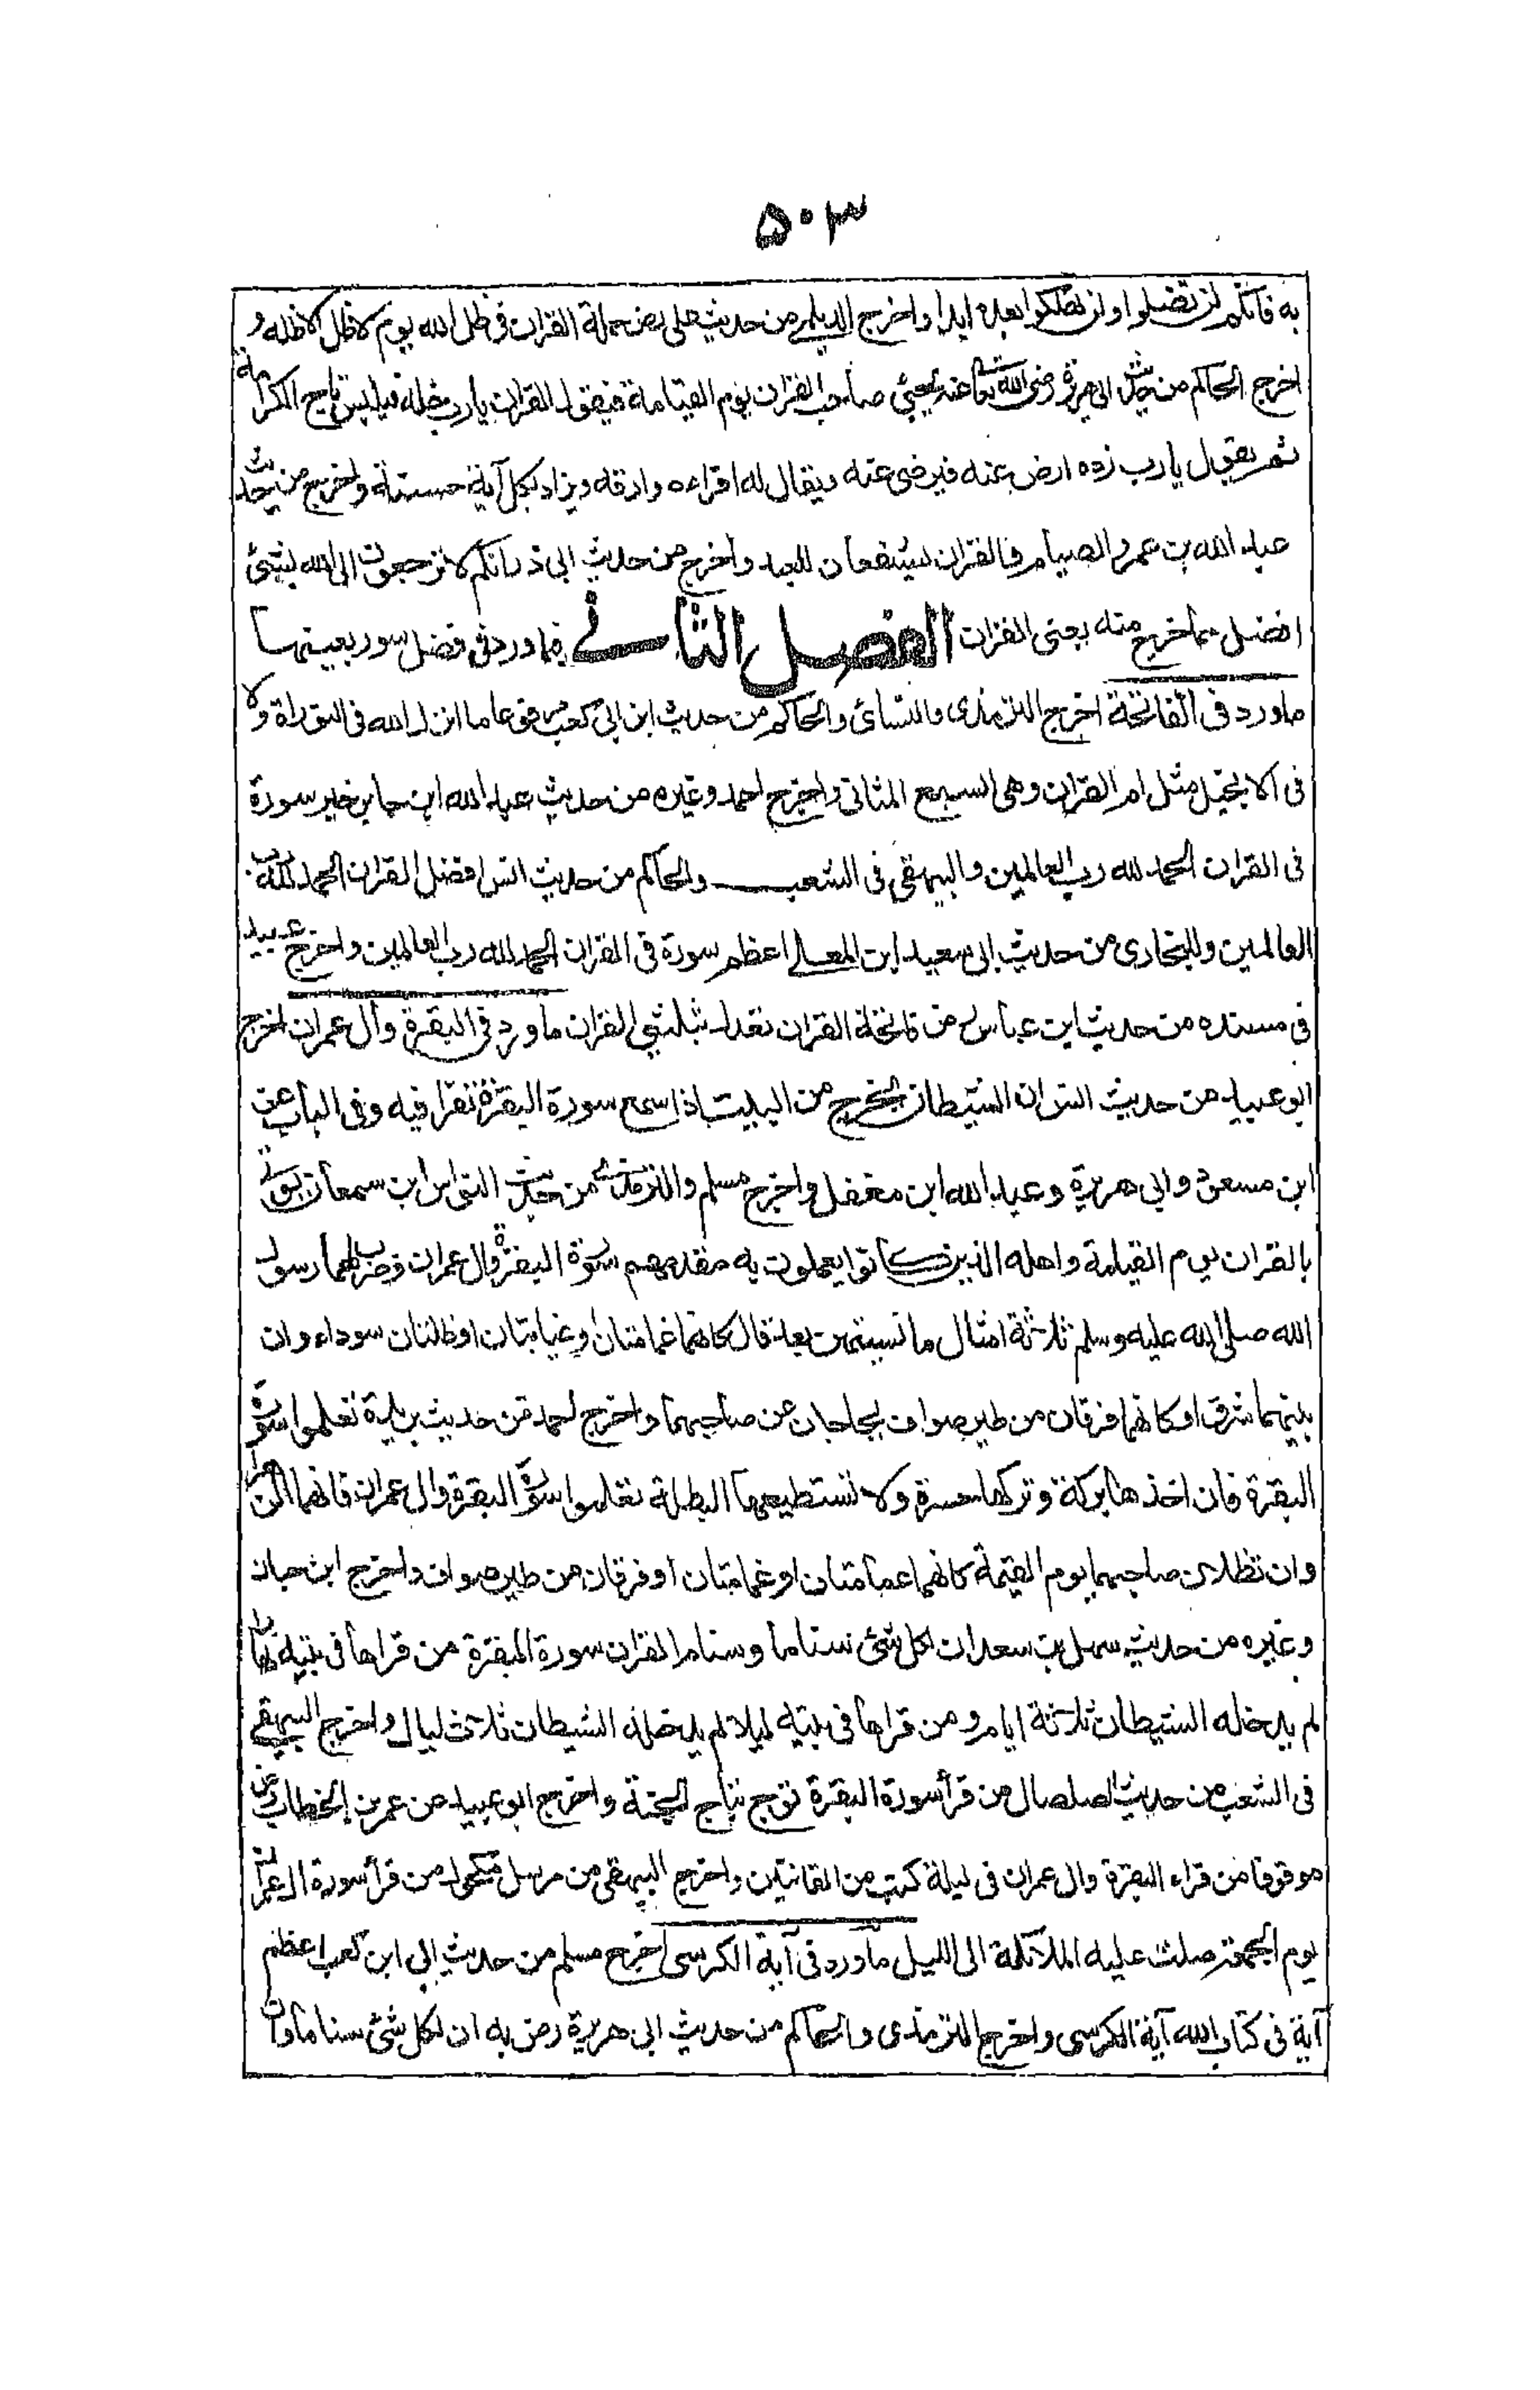 ۵۰۳
به فانكم لن تضلوا ولن تهلكوا بعده ابدا واخرج الديلمي من حديث على رض حملة القران فى ظل الله يوم لا ظل الا ظله و
اخرج الحاكم من حديث ابى هريرة رضى الله تعا عنه يجئي صاحب القران يوم القيامة فيقول القران يارب حله فيلبس تاج الكرامة
ثم يقول يا رب زده ارض عنه فيرضى عنه ويقال له اقراءه وارقه ويزاد بكل آية حسنة واخرج من حديث
عبد الله بن عمر والصيام والقران ليشفعان للعبد واخرج من حديث ابى ذر انكم لا ترجعون الى الله بشئ
افضل مما خرج منه يعنى القران الفصل الثانے فيما ورد فى فضل سور بعينها
ماورد فى الفاتحة اخرج الترمذى والنسائى والحاكم من حديث ابن ابى كعب مرفوعا ما انزل الله فى التوراة ولا
فى الانجيل مثل ام القران وهى السبع المثانى واخرج احمد وغيره من حديث عبد الله ابن جابر خير سورة
فى القران الحمد لله رب العالمين والبيهقى فى الشعب والحاكم من حديث انس افضل القران الحمد لله رب
العالمين وللبخارى من حديث ابى سعيد ابن المعلے اعظم سورة فى القران الحمد لله رب العالمين واخرج عبيد
فى مسنده من حديث ابن عباس من فاتحة القران تعدل بثلثي القران ماورد فى البقرة وآل عمران اخرج
ابو عبيد من حديث انس ان الشيطان يخرج من البيت اذا سمع سورة البقرة تقرا فيه وفى الباب عن
ابن مسعود وابى هريرة وعبد الله ابن مغفل واخرج مسلم والترمذے من حديث النواس ابن سمعان يوتے
بالقران يوم القيامة واهله الذين كانوا يعملون به مقدمهم سورة البقرة وال عمران وضرب لهما رسول
الله صلى الله عليه وسلم ثلاثة امثال ما نسيتهن بعد قال كانهما غمامتان او غيابتان او ظالتان سوداء وان
بينهما شرق او كانهما فرقان من طير صواف يحاجان عن صاحبهما واخرج احمد من حديث بريدة تعلموا سورة
البقرة فان اخذها بركة وتركها حسرة ولا تستطيعها البطلة تعلموا سورة البقرة وال عمران فانهما الزهراوان
وان تظلان صاحبهما يوم القيمة كانهما غمامتان او غمامتان او فرقان من طير صواف واخرج ابن حبان
وغيره من حديث سهل بن سعد ان لكل شئ سناما وسنام القران سورة البقرة من قراها فى بيته نهارا
لم يدخله الشيطان ثلاثة ايام ومن قراها فى بيته ليلا لم يدخله الشيطان ثلاث ليال واخرج البيهقے
فى الشعب من حديث الصلصال من قرأ سورة البقرة توج بتاج الجنة واخرج ابو عبيد عن عمر بن الخطاب رض
موقوفا من قراء البقرة وال عمران فى ليلة كتب من القانتين واخرج البيهقى من مرسل مكحول من قرأ سورة ال عمران
يوم الجمعة صلت عليه الملائكة الى الليل ماورد فى آية الكرسى اخرج مسلم من حديث ابي ابن كعب اعظم
آية فى كتاب الله آية الكرسى واخرج الترمذى والحاكم من حديث ابى هريرة رض به ان لكل شئ سناما وان